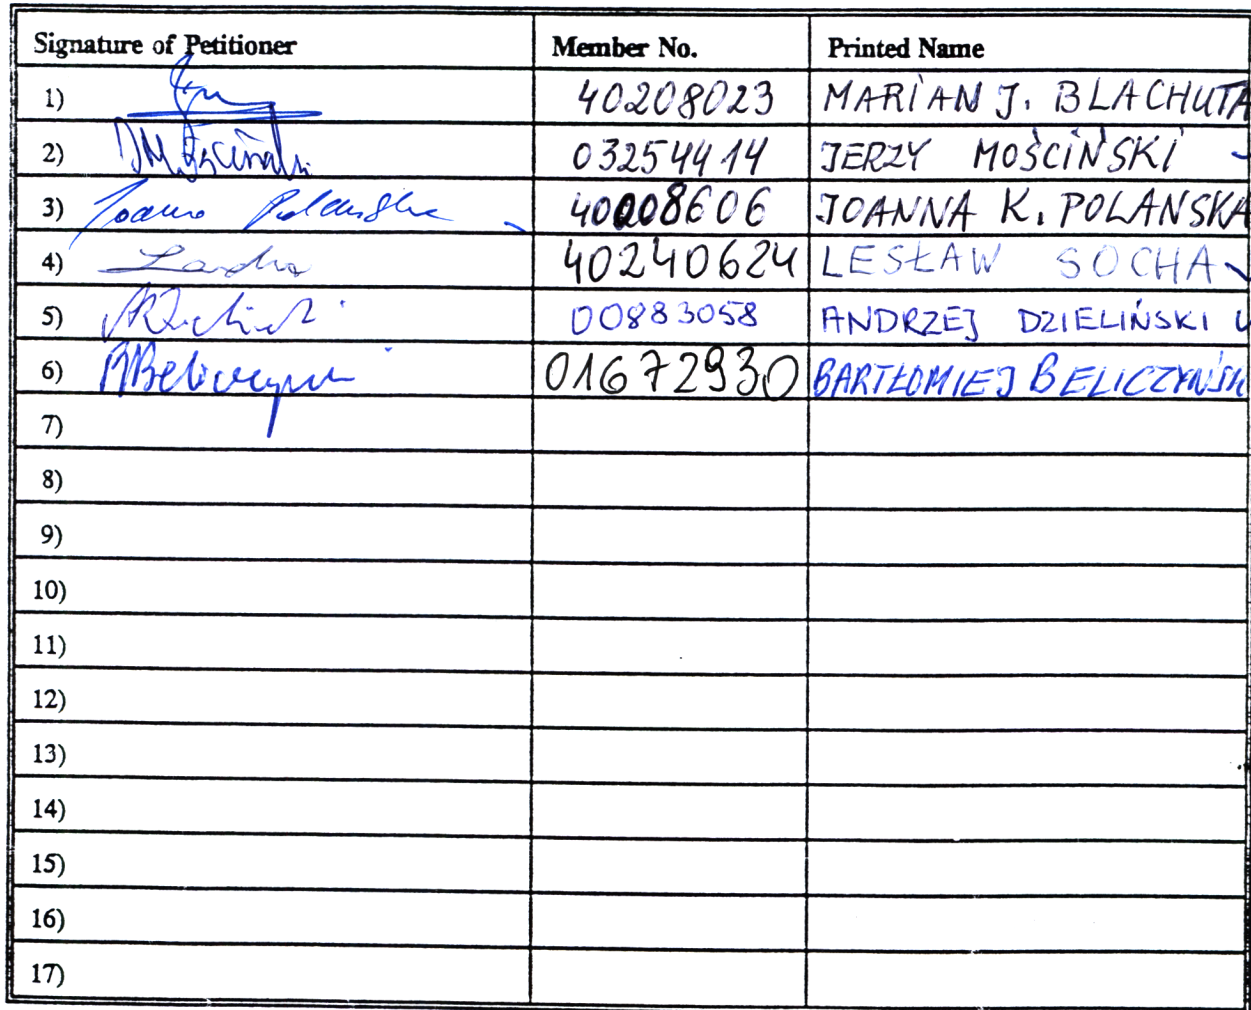 Signature of Petitioner Member No. Printed Name
1) 40208023 MARIAN J. BLACHUTA
2) 03254414 JERZY MOŚCIŃSKI
3) 40208606 JOANNA K. POLAŃSKA
4) 40240624 LESŁAW SOCHA
5) 00883058 ANDRZEJ DZIELIŃSKI
6) 01672930 BARTŁOMIEJ BELICZYŃSKI
7)
8)
9)
10)
11)
12)
13)
14)
15)
16)
17)